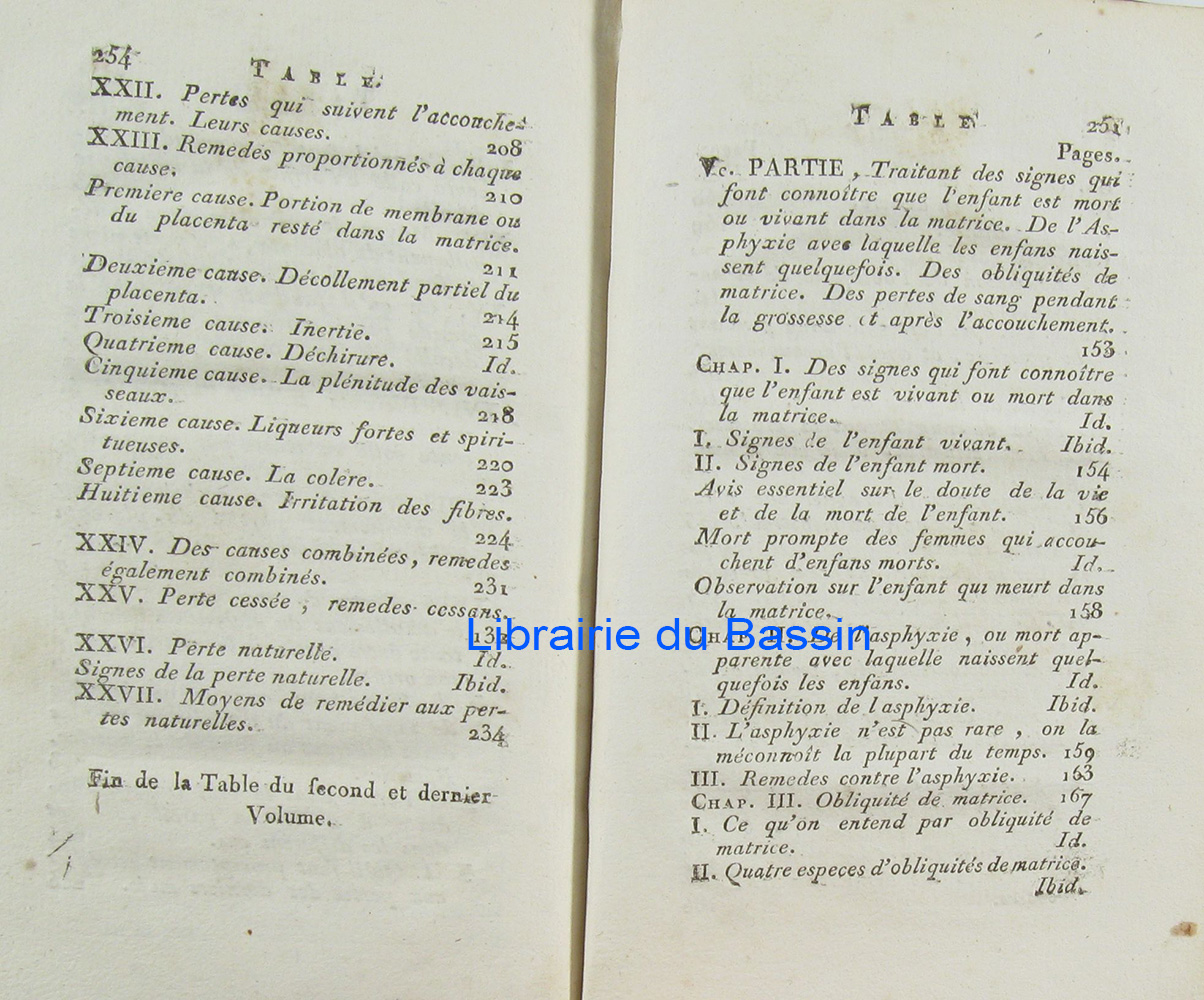 254
TABLE.
XXII. Pertes qui suivent l'accouche-
ment. Leurs causes. 208
XXIII. Remedes proportionnés à chaque
cause. 210
Premiere cause. Portion de membrane ou
du placenta resté dans la matrice.
211
Deuxieme cause. Décollement partiel du
placenta. 214
Troisieme cause. Inertie. 215
Quatrieme cause. Déchirure. Id.
Cinquieme cause. La plénitude des vais-
seaux. 218
Sixieme cause. Liqueurs fortes et spiri-
tueuses. 220
Septieme cause. La colere. 223
Huitieme cause. Irritation des fibres.
224
XXIV. Des causes combinées, remedes
également combinés. 231
XXV. Perte cessée, remedes cessans.
XXVI. Perte naturelle. Id.
Signes de la perte naturelle. Ibid.
XXVII. Moyens de remédier aux per-
tes naturelles. 234
Fin de la Table du second et dernier
Volume.
TABLE 251
Pages.
Ve. PARTIE, Traitant des signes qui
font connoître que l'enfant est mort
ou vivant dans la matrice. De l'As-
phyxie avec laquelle les enfans nais-
sent quelquefois. Des obliquités de
matrice. Des pertes de sang pendant
la grossesse et après l'accouchement.
153
CHAP. I. Des signes qui font connoître
que l'enfant est vivant ou mort dans
la matrice. Id.
I. Signes de l'enfant vivant. Ibid.
II. Signes de l'enfant mort. 154
Avis essentiel sur le doute de la vie
et de la mort de l'enfant. 156
Mort prompte des femmes qui accou-
chent d'enfans morts. Id.
Observation sur l'enfant qui meurt dans
la matrice. 158
CHAP. II. De l'asphyxie, ou mort ap-
parente avec laquelle naissent quel-
quefois les enfans. Id.
I. Définition de l'asphyxie. Ibid.
II. L'asphyxie n'est pas rare, on la
méconnoît la plupart du temps. 159
III. Remedes contre l'asphyxie. 163
CHAP. III. Obliquité de matrice. 167
I. Ce qu'on entend par obliquité de
matrice. Id.
II. Quatre especes d'obliquités de matrice.
Ibid.
Librairie du Bassin